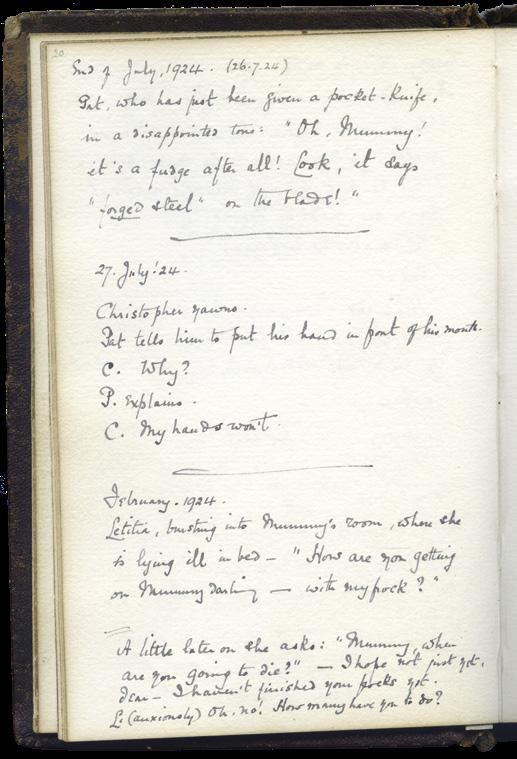 20
End of July, 1924. (26.7.24)
Pat, who has just been given a pocket-knife,
in a disappointed tone: "Oh, Mummy!
it's a fudge after all! Look, it says
"forged steel" on the blade!"
27. July '24.
Christopher yawns.
Pat tells him to put his hand in front of his mouth.
C. Why?
P. Explains.
C. My hands won't.
February. 1924.
Letitia, bursting into Mummy's room, where she
is lying ill in bed – "How are you getting
on Mummy darling — with my frock?"
A little later on she asks: "Mummy, when
are you going to die?" — I hope not just yet,
dear – I haven't finished your frocks yet.
L. (anxiously) Oh, no! How many have you to do?